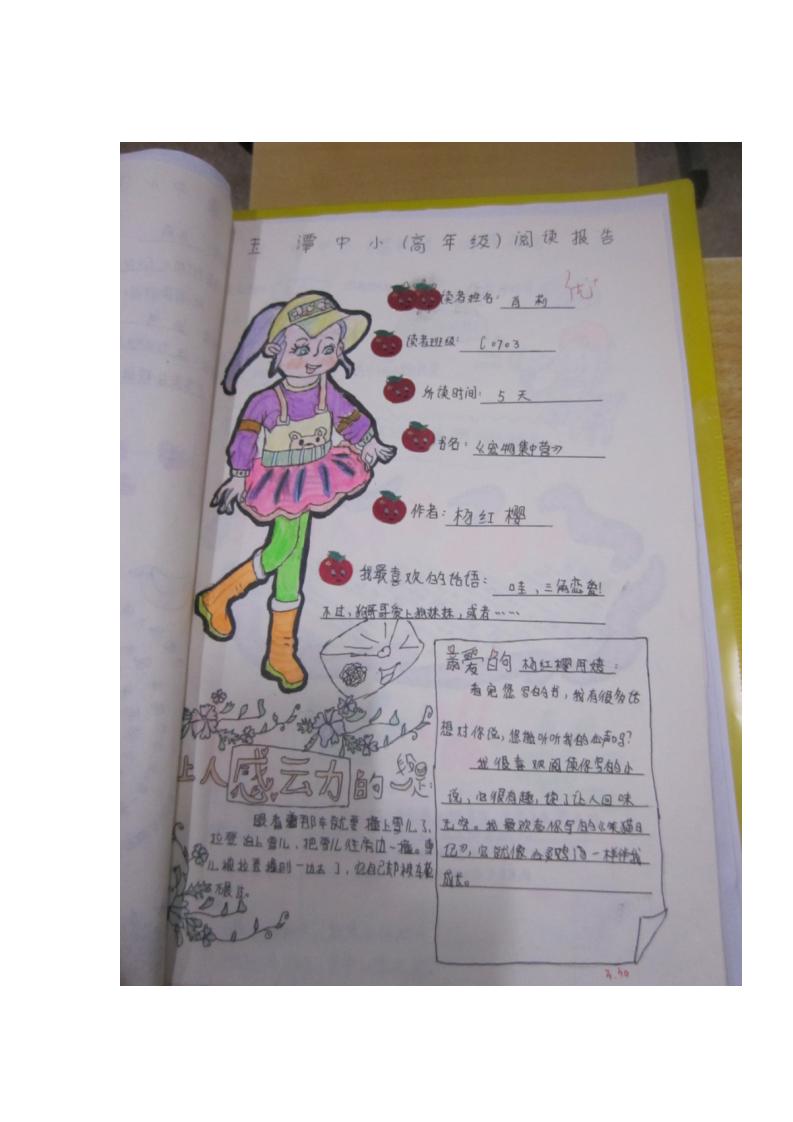 玉潭中小(高年级)阅读报告
优+
读者姓名: 肖莉
读者班级: C0703
所读时间: 5天
书名: 《宠物集中营》
作者: 杨红樱
我最喜欢的话语: 哇,三角恋爱!
不过,狗哥哥爱上狗妹妹,或者……
最爱的杨红樱阿姨:
看完您写的书,我有很多话
想对你说,您能听听我的心声吗?
我很喜欢阅读你写的小
说,它很有趣,读了让人回味
无穷。我最欢喜你写的《笑猫日
记》,它就像心灵鸡汤一样伴我
成长。
让人感动的一段:
眼看着那车就要撞上雪儿了,
拉登迫上雪儿,把雪儿往旁边一撞。雪
儿被拉登撞到一边去了,但自己却被车
3.30